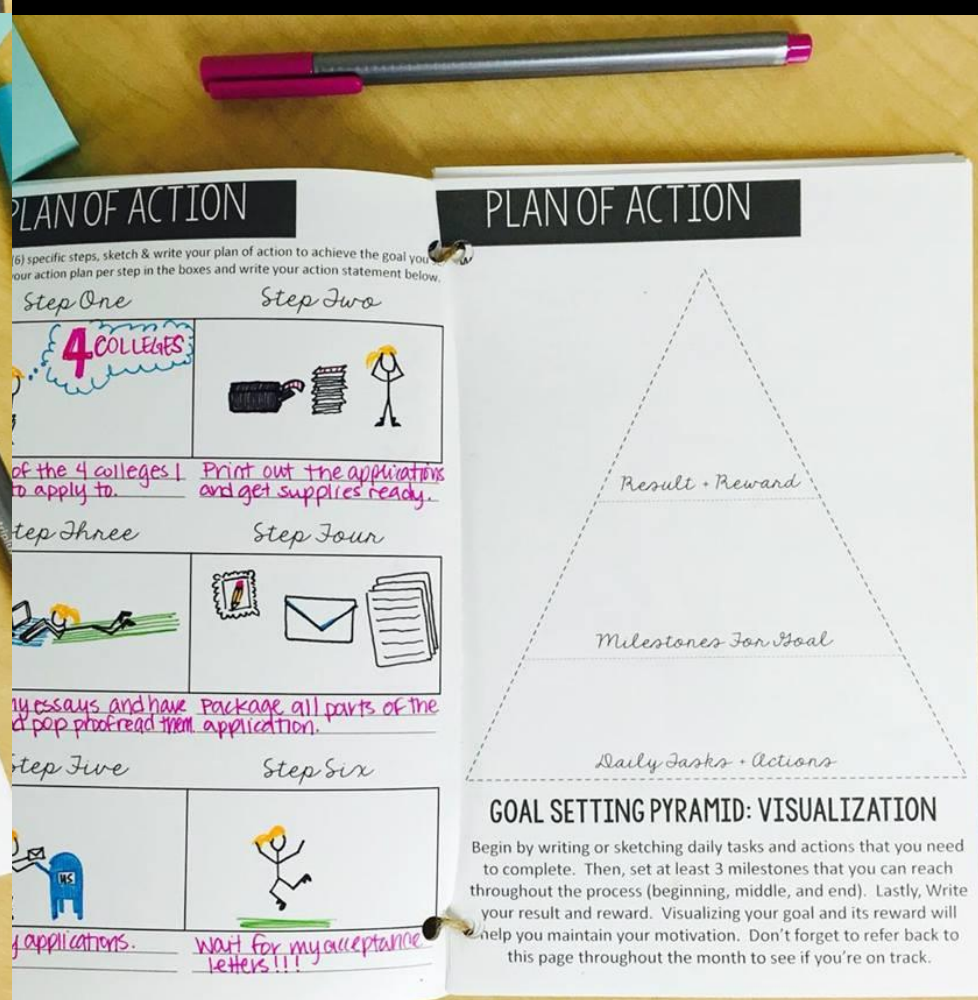 PLAN OF ACTION
(6) specific steps, sketch & write your plan of action to achieve the goal you
your action plan per step in the boxes and write your action statement below.
Step One
Step Two
4 COLLEGES
of the 4 colleges I
to apply to.
Print out the applications
and get supplies ready.
Step Three
Step Four
my essays and have
pop proofread them.
Package all parts of the
application.
Step Five
Step Six
US
applications.
Wait for my acceptance
letters!!!
PLAN OF ACTION
Result + Reward
Milestones For Goal
Daily Tasks + Actions
GOAL SETTING PYRAMID: VISUALIZATION
Begin by writing or sketching daily tasks and actions that you need
to complete. Then, set at least 3 milestones that you can reach
throughout the process (beginning, middle, and end). Lastly, Write
your result and reward. Visualizing your goal and its reward will
help you maintain your motivation. Don't forget to refer back to
this page throughout the month to see if you're on track.